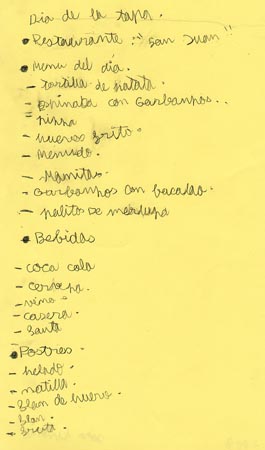 Dia de la tapa.
• Restaurante: "San Juan"
• Menu del día.
- tortilla de patata
- espinaba con Garbanpos..
- pinna
- huevos frito.
- Menudo.
- Mamitas.
- Garbanpos con bacalao.
- palito de merlupa
• Bebidas
- coca cola
- cervepa.
- vino.
- casera.
- Santa
• Postres.
- helado.
- natilla.
- flan de huevo.
- flan.
- fruta.